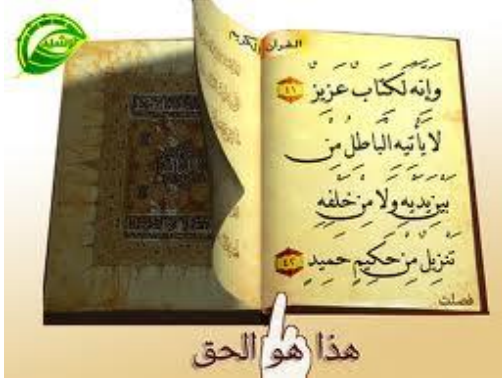 القرآن الكريم
وَإِنَّهُ لَكِتَابٌ عَزِيزٌ ٤١
لا يَأْتِيهِ الْبَاطِلُ مِنْ
بَيْنِ يَدَيْهِ وَلا مِنْ خَلْفِهِ
تَنْزِيلٌ مِنْ حَكِيمٍ حَمِيدٍ ٤٢
فصلت
هذا هو الحق